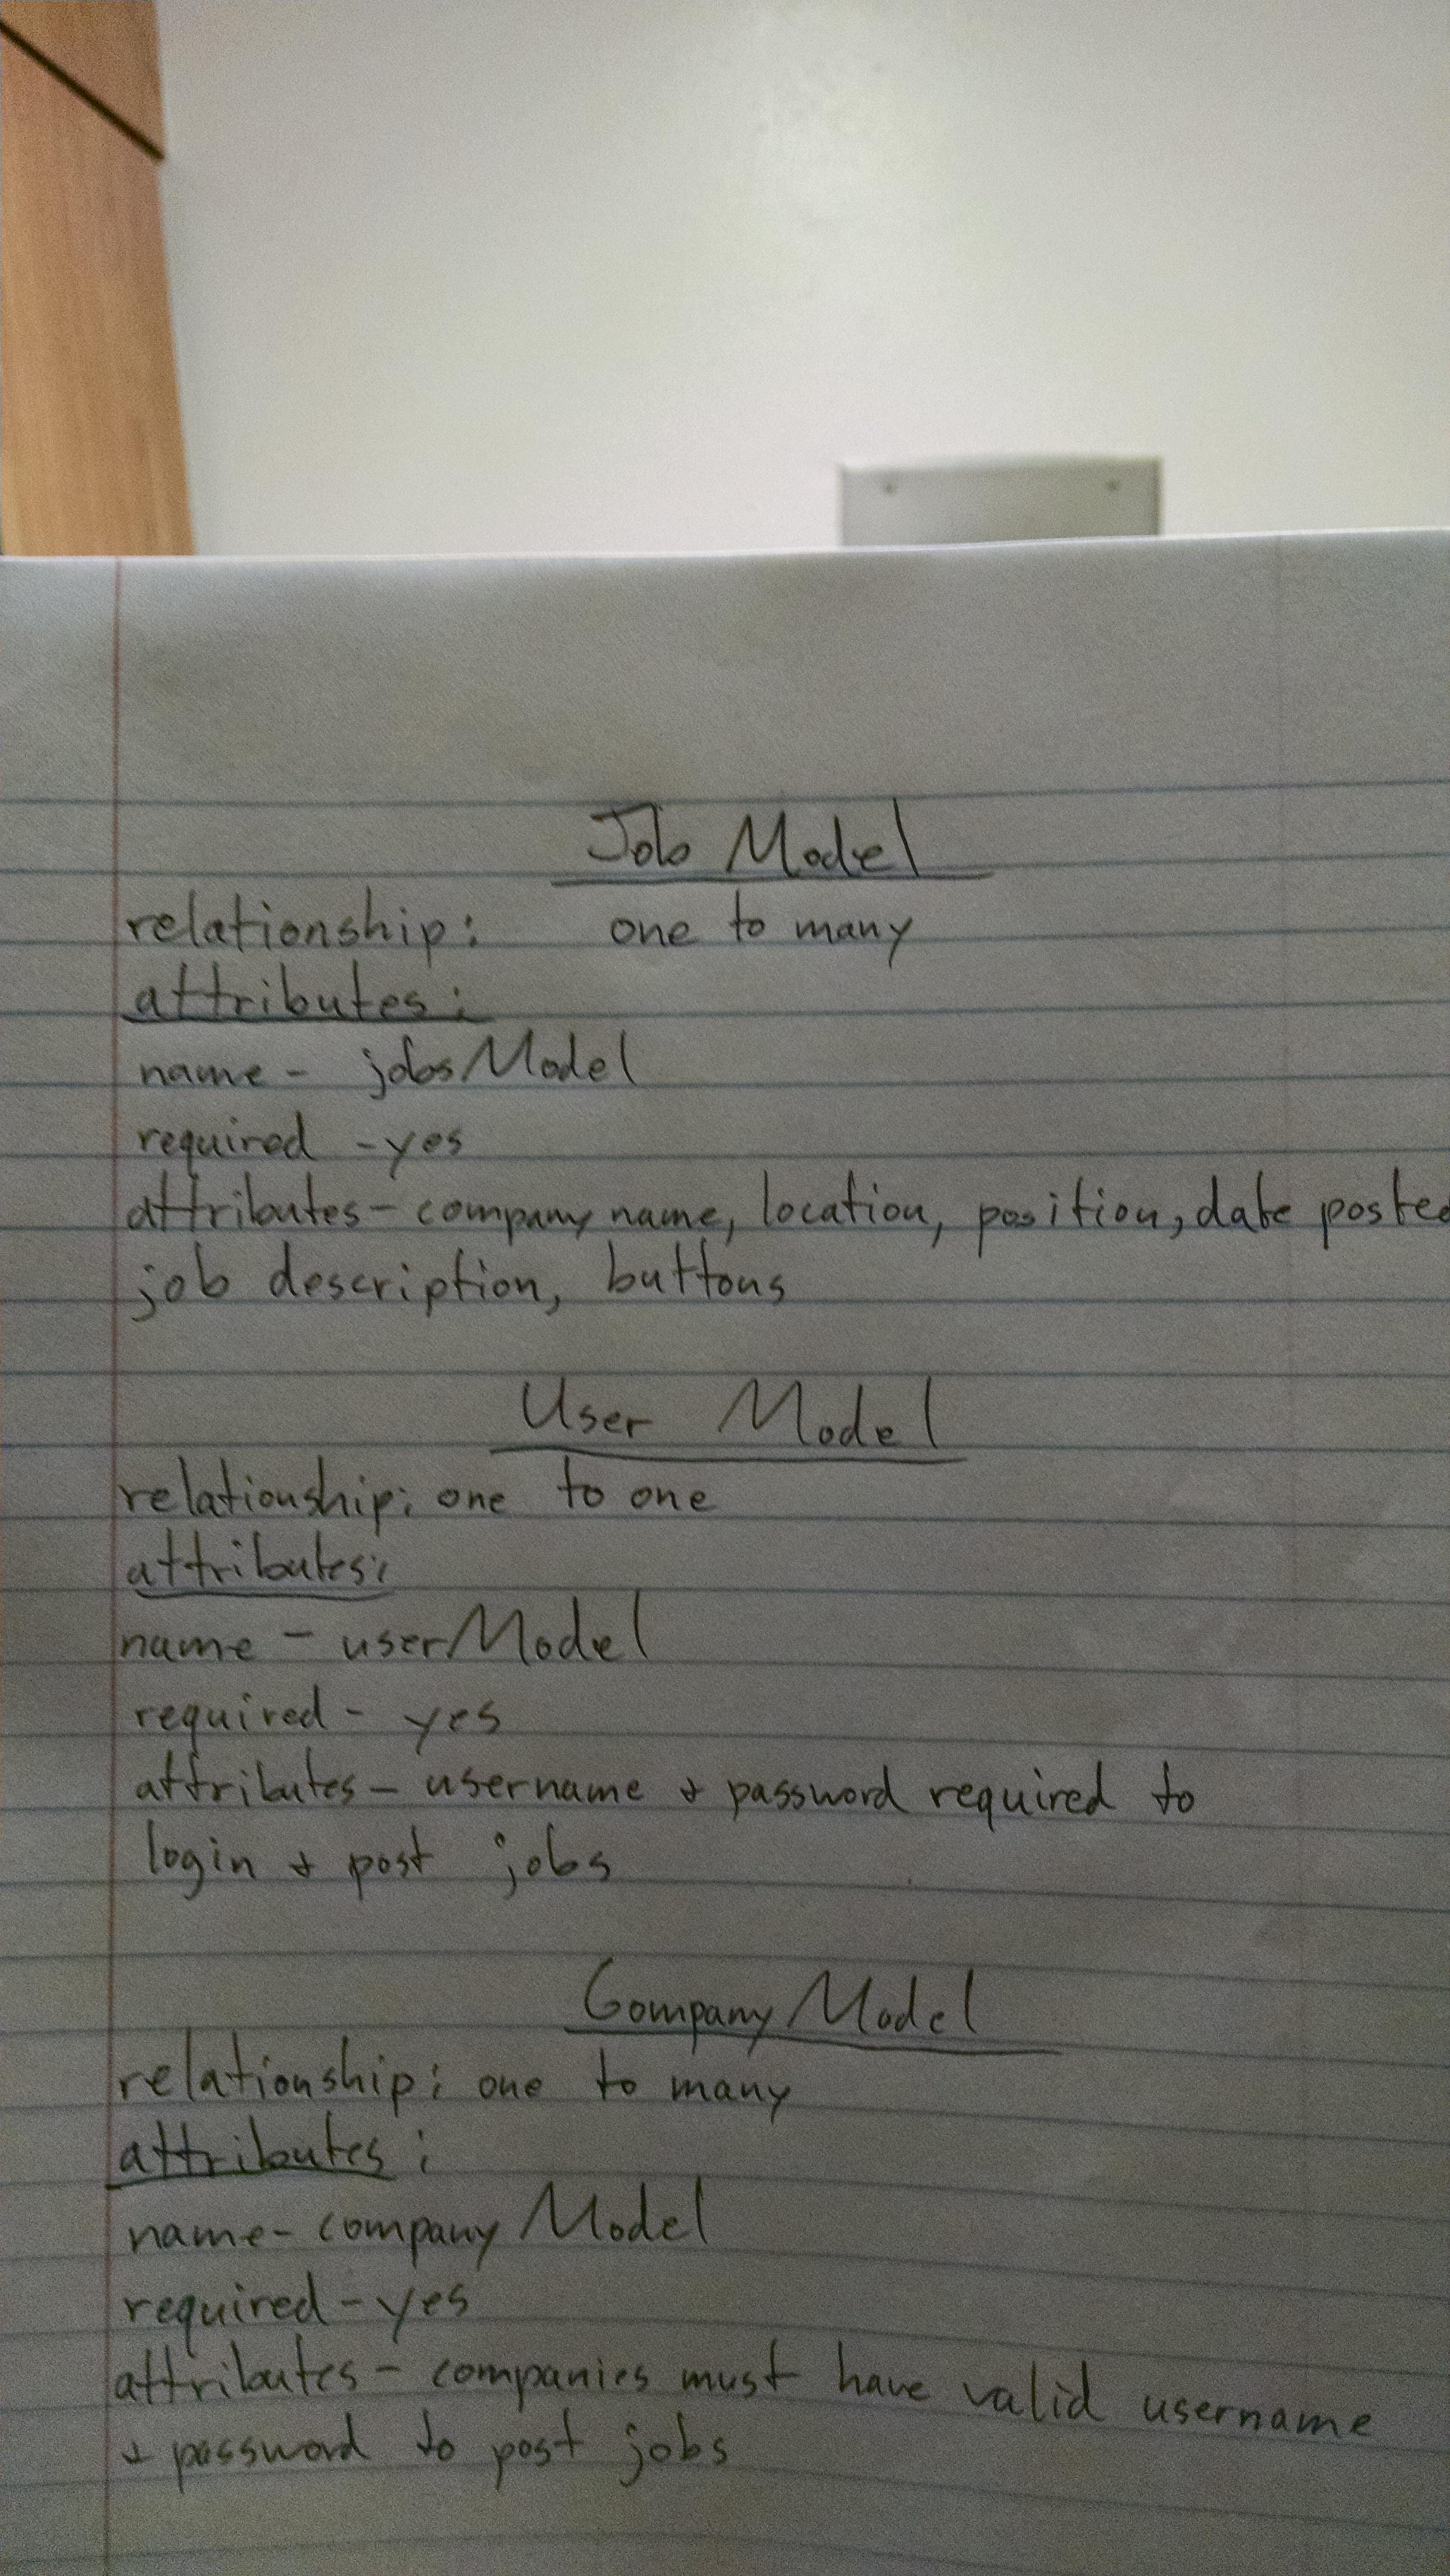 Job Model
relationship: one to many
attributes:
name - jobsModel
required - yes
attributes - company name, location, position, date posted
job description, buttons
User Model
relationship: one to one
attributes:
name - userModel
required - yes
attributes - username + password required to
login + post jobs
Company Model
relationship: one to many
attributes:
name - company Model
required - yes
attributes - companies must have valid username
+ password to post jobs